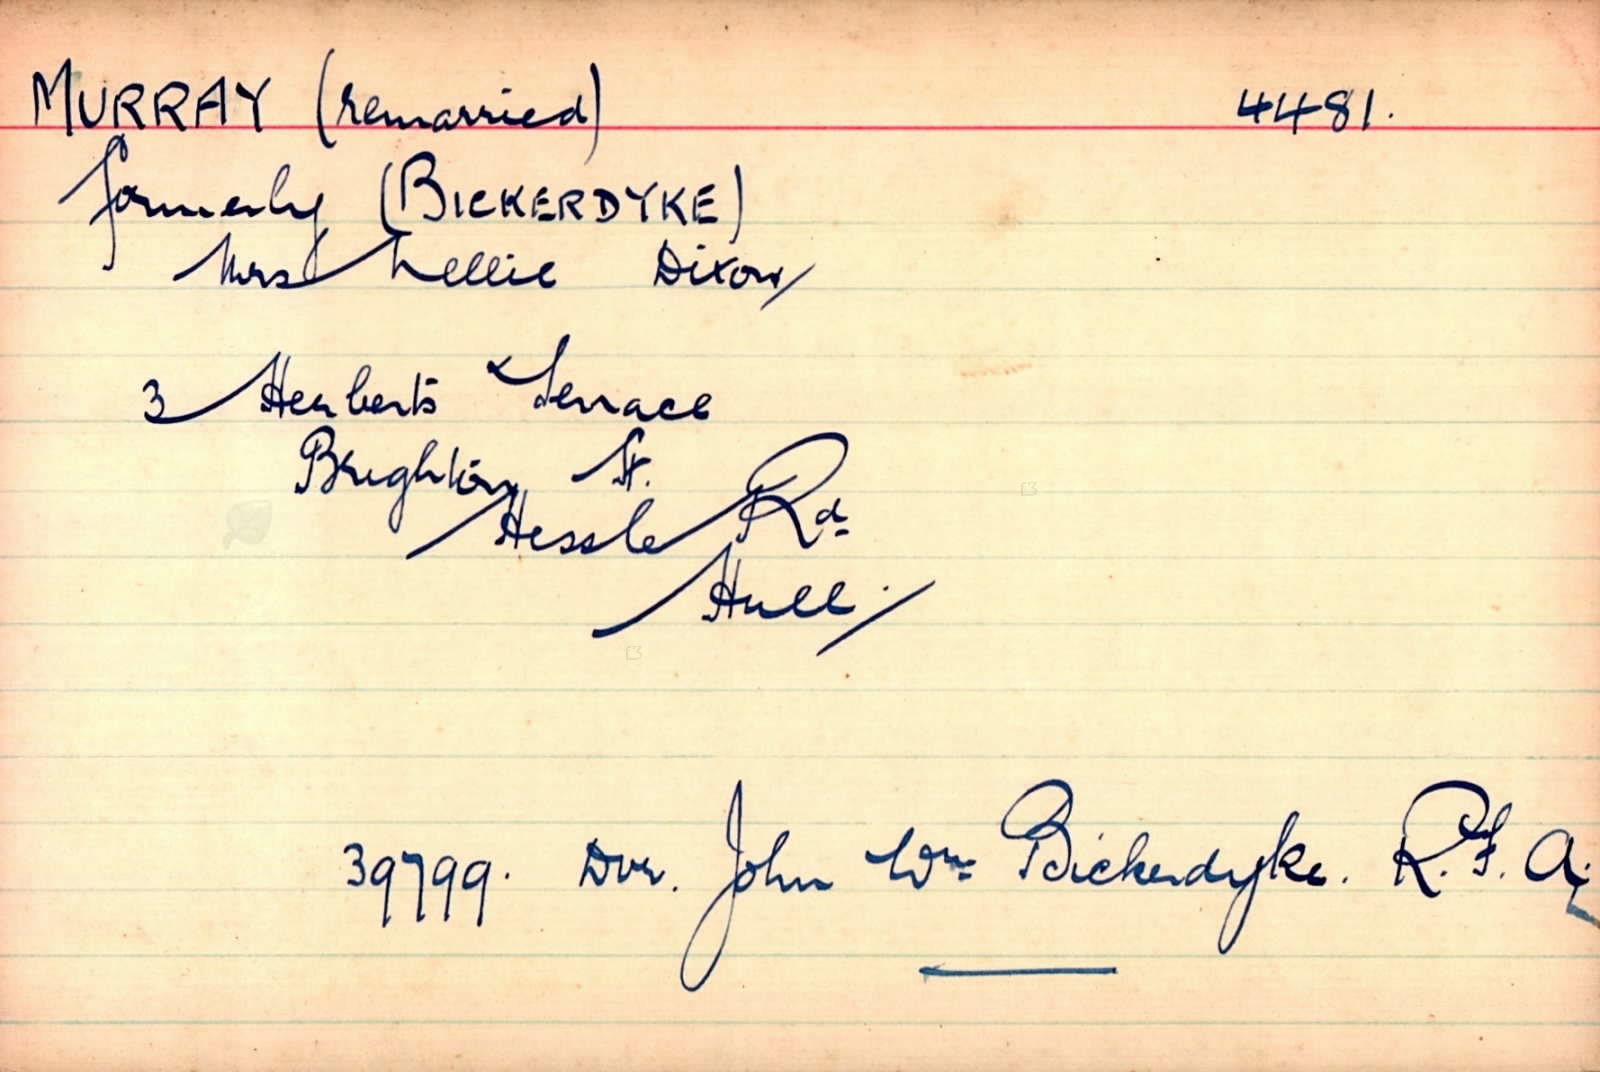 MURRAY (remarried) 4481.
formerly (BICKERDYKE)
Mrs Nellie Dixon
3 Herberts Terrace
Brighton St.
Hessle Rd
Hull.
39799. Dvr. John Wm Bickerdyke. R.F.A.